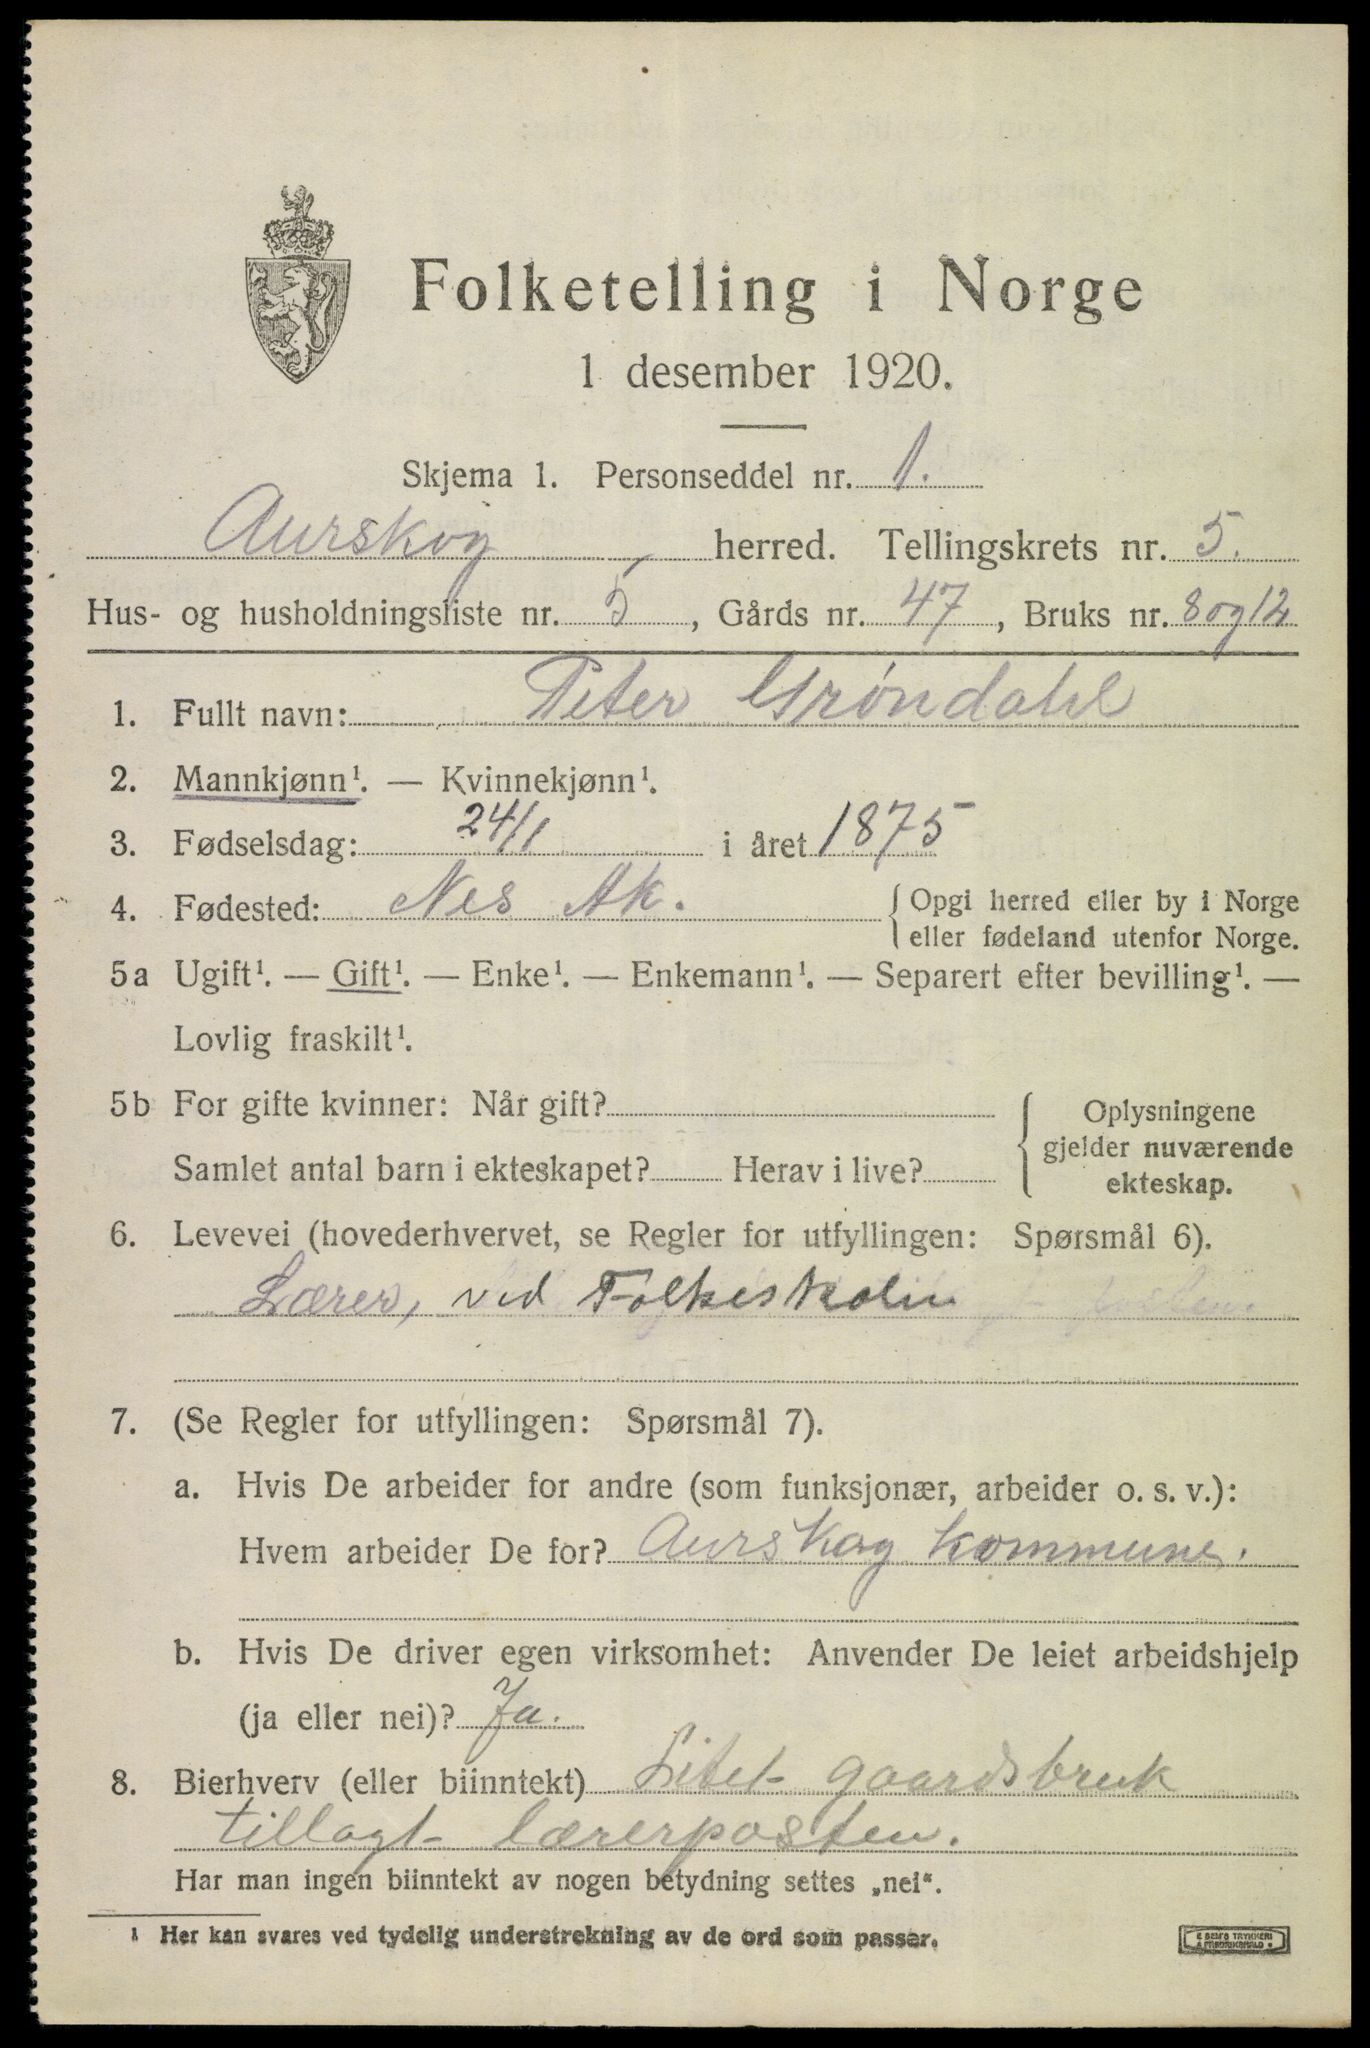 Folketelling i Norge
1 desember 1920.
Skjema 1. Personseddel nr. 1.
Aurskog, herred. Tellingskrets nr. 5.
Hus- og husholdningsliste nr. 5, Gårds nr. 47, Bruks nr. 8 og 12
1. Fullt navn: Peter Grøndahl
2. Mannkjønn¹. — Kvinnekjønn¹.
3. Fødselsdag: 24/1 i året 1875
4. Fødested: Nes Ak. { Opgi herred eller by i Norge
eller fødeland utenfor Norge.
5a Ugift¹. — Gift¹. — Enke¹. — Enkemann¹. — Separert efter bevilling¹. —
Lovlig fraskilt¹.
5b For gifte kvinner: Når gift? { Oplysningene
gjelder nuværende
Samlet antal barn i ekteskapet? Herav i live?
ekteskap.
6. Levevei (hovederhvervet, se Regler for utfyllingen: Spørsmål 6).
Lærer, ved Folkeskolen
7. (Se Regler for utfyllingen: Spørsmål 7).
a. Hvis De arbeider for andre (som funksjonær, arbeider o. s. v.):
Hvem arbeider De for? Aurskog kommune.
b. Hvis De driver egen virksomhet: Anvender De leiet arbeidshjelp
(ja eller nei)? Ja.
8. Bierhverv (eller biinntekt) Litet gaardsbruk
tillagt lærerposten.
Har man ingen biinntekt av nogen betydning settes „nei“.
1 Her kan svares ved tydelig understrekning av de ord som passer.
E SEM'S TRYKKERI
FREDRIKSHALD